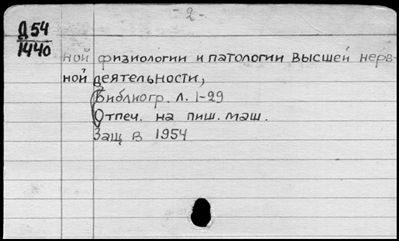 - 2 -
Д54
1440
ной физиологии и патологии высшей нерв-
ной деятельности,
Библиогр. л. 1-29
Отпеч. на пиш. маш.
Защ в 1954